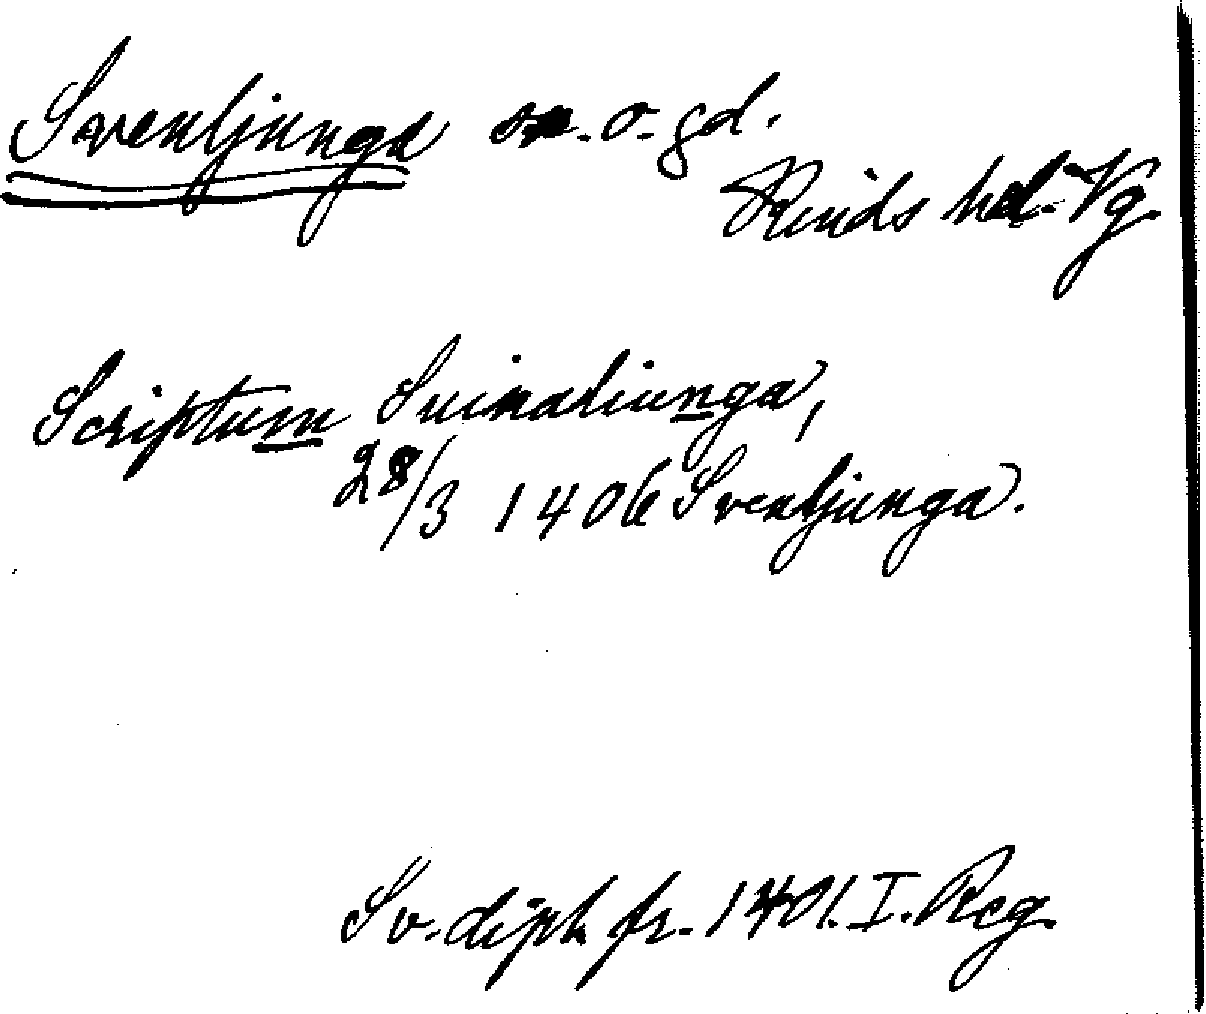 Svenljunga sn. o. gd.
Kinds hd. Vg.
Scriptum Suinaliunga,
28/3 1406 Svenljunga.
Sv. dipl. fr. 1401. I. Reg.